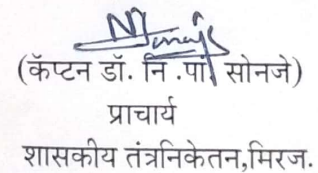 (कॅप्टन डॉ. नि .पा. सोनजे)
प्राचार्य
शासकीय तंत्रनिकेतन,मिरज.